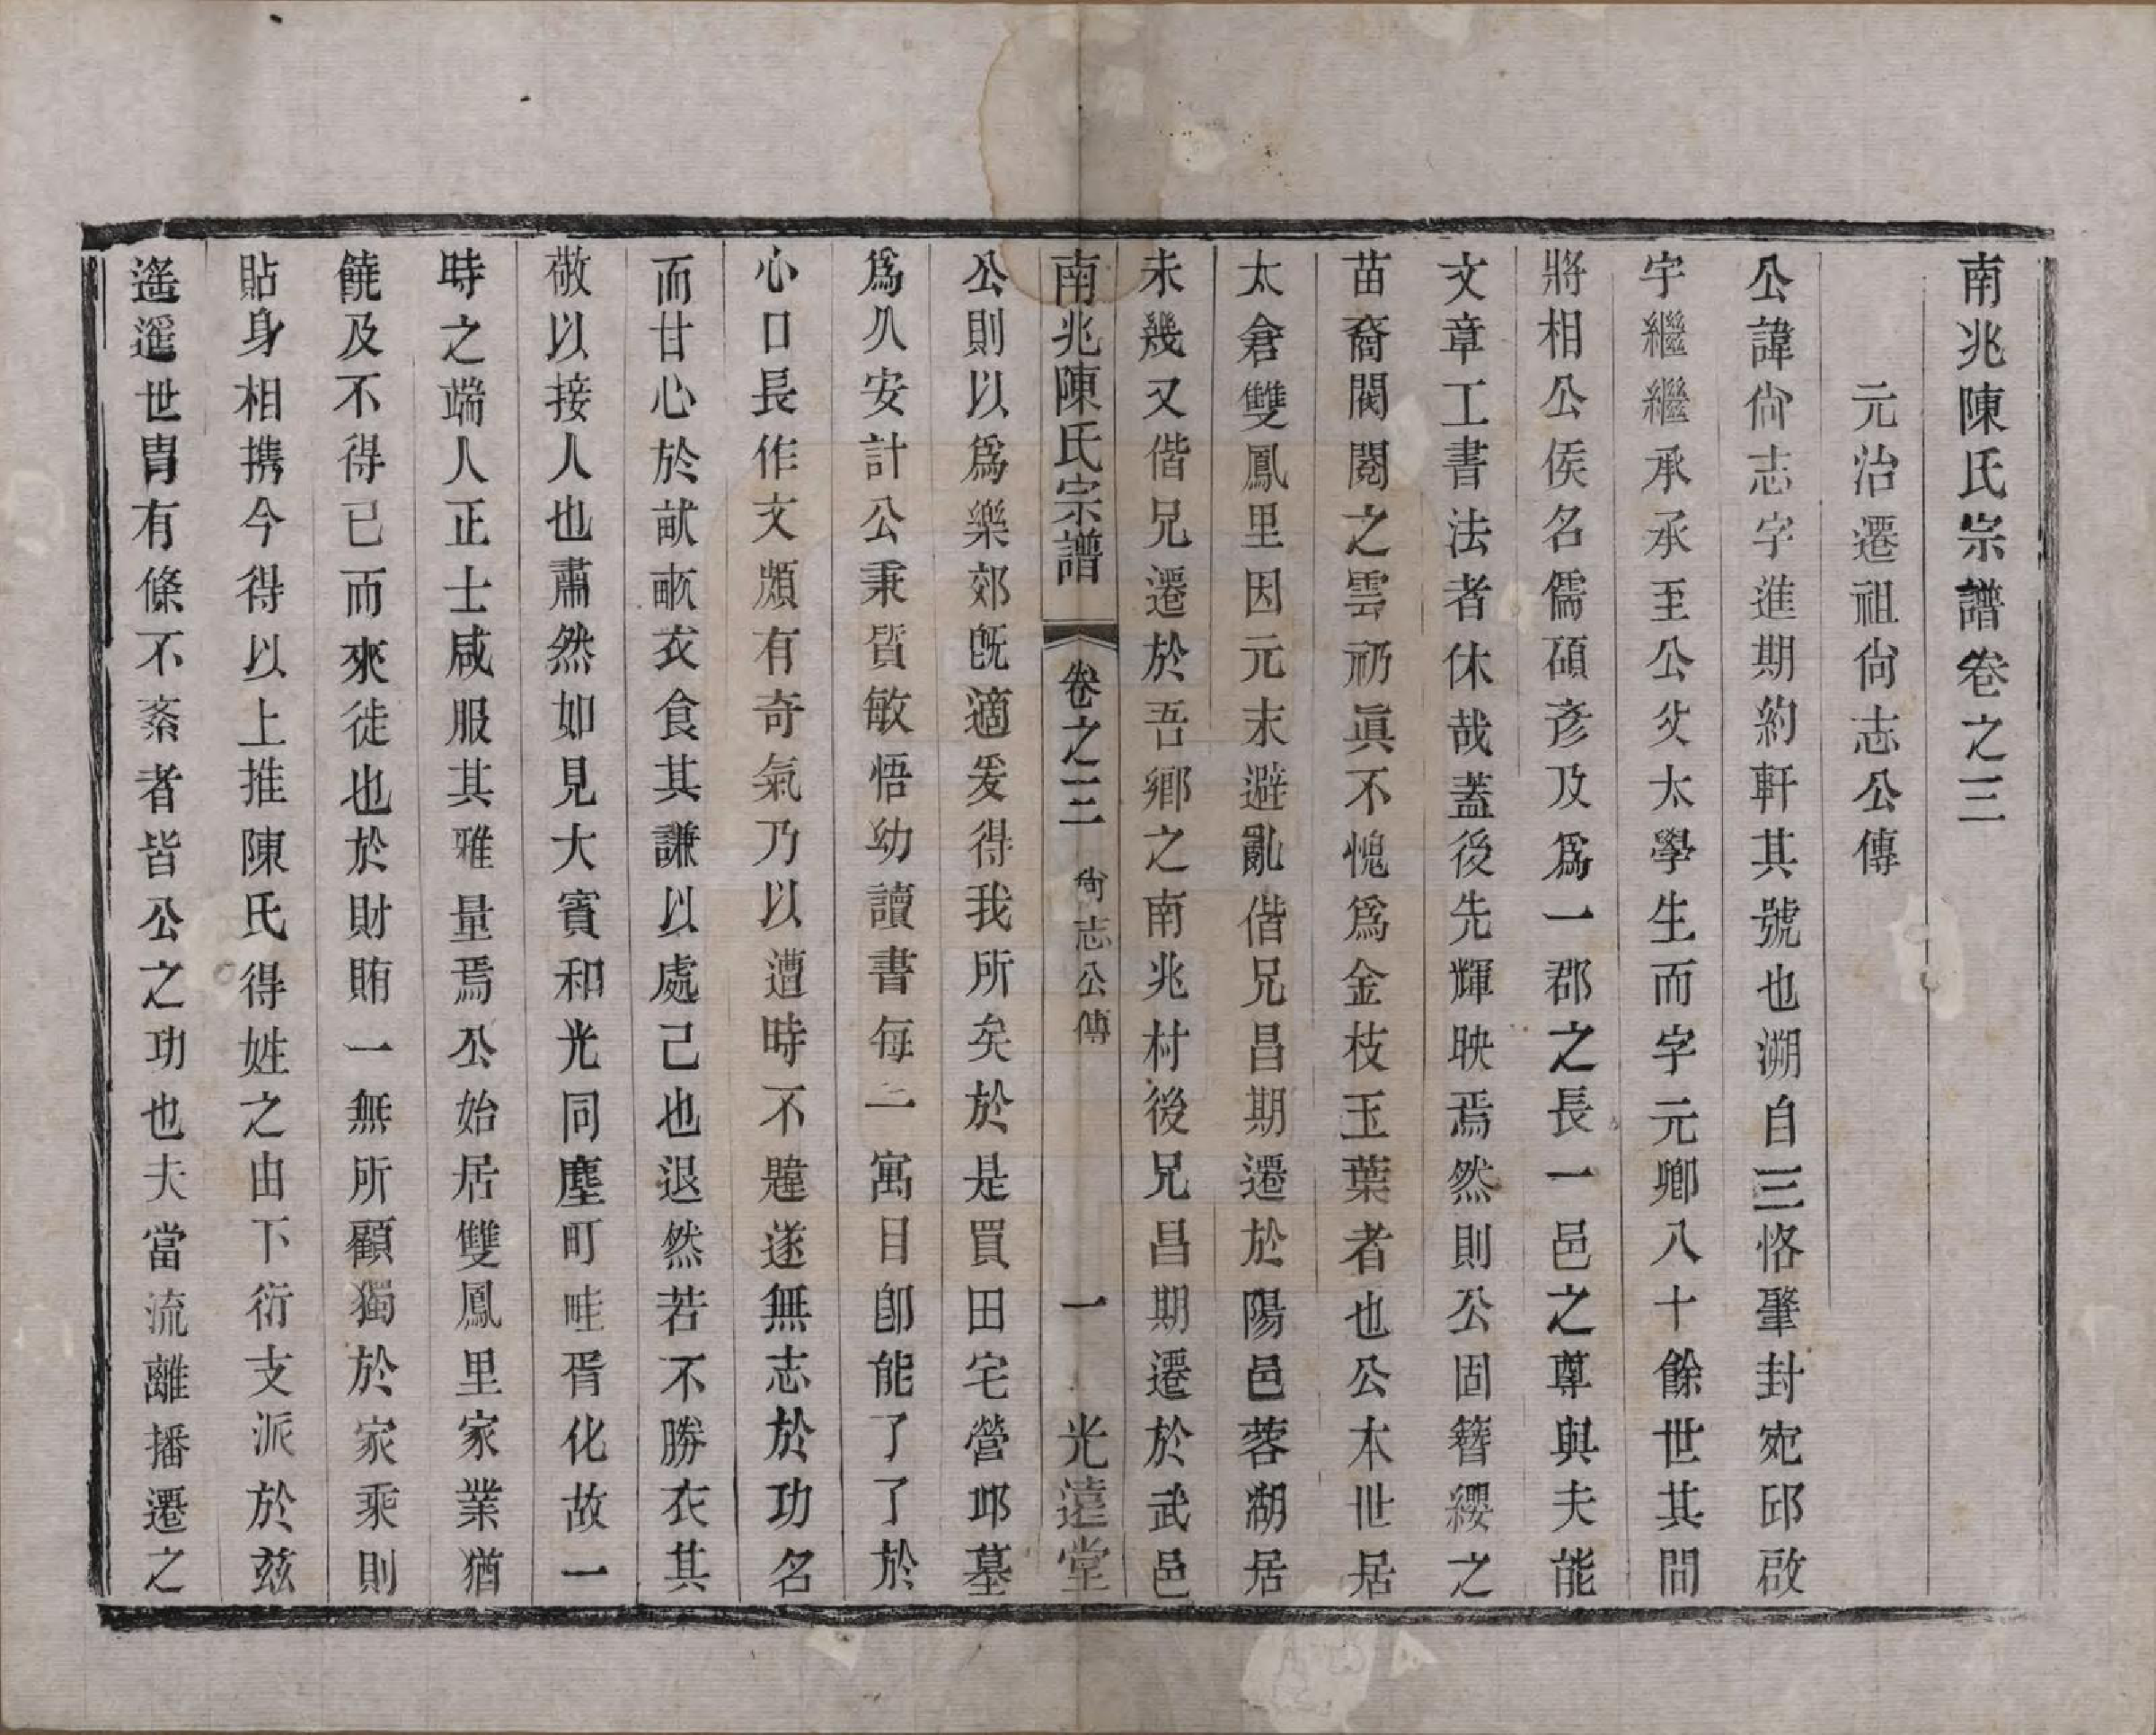 南兆陳氏宗譜卷之三
元治遷祖尙志公傳
公諱尙志字進期約軒其號也溯自三恪肇封宛邱啟
宇繼繼承承至公父太學生而字元卿八十餘世其間
將相公侯名儒碩彥及爲一郡之長一邑之尊與夫能
文章工書法者休哉蓋後先輝映焉然則公固簪纓之
苗裔閥閱之雲礽眞不愧爲金枝玉葉者也公本世居
太倉雙鳳里因元末避亂偕兄昌期遷於陽邑蓉湖居
未幾又偕兄遷於吾鄉之南兆村後兄昌期遷於武邑
南兆陳氏宗譜 卷之三 尙志公傳 一 光遠堂
公則以爲樂郊旣適爰得我所矣於是買田宅營邱墓
爲久安計公秉質敏悟幼讀書每一寓目卽能了了於
心口長作文頗有奇氣乃以遭時不韙遂無志於功名
而甘心於畎畝衣食其謙以處己也退然若不勝衣其
敬以接人也肅然如見大賓和光同塵町畦胥化故一
時之端人正士咸服其雅量焉公始居雙鳳里家業猶
饒及不得已而來徙也於財賄一無所顧獨於家乘則
貼身相携今得以上推陳氏得姓之由下衍支派於茲
遙遙世胄有條不紊者皆公之功也夫當流離播遷之